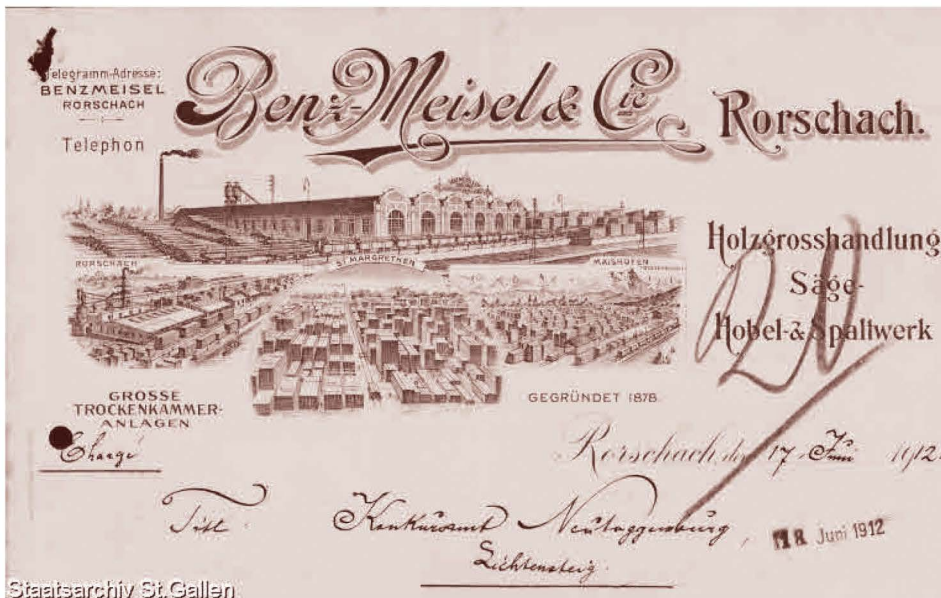 Telegramm-Adresse:
BENZMEISEL
RORSCHACH
Telephon
Benz-Meisel & Cie
Rorschach.
Holzgrosshandlung
Säge-
Hobel-& Spaltwerk
20
RORSCHACH
ST MARGRETHEN
MAISHOFEN
GROSSE
TROCKENKAMMER-
ANLAGEN
GEGRÜNDET 1878.
Chargé
Rorschach, den 17. Juni 1912.
Titl. Konkursamt Neutoggenburg
Lichtensteig.
18. Juni 1912
Staatsarchiv St.Gallen